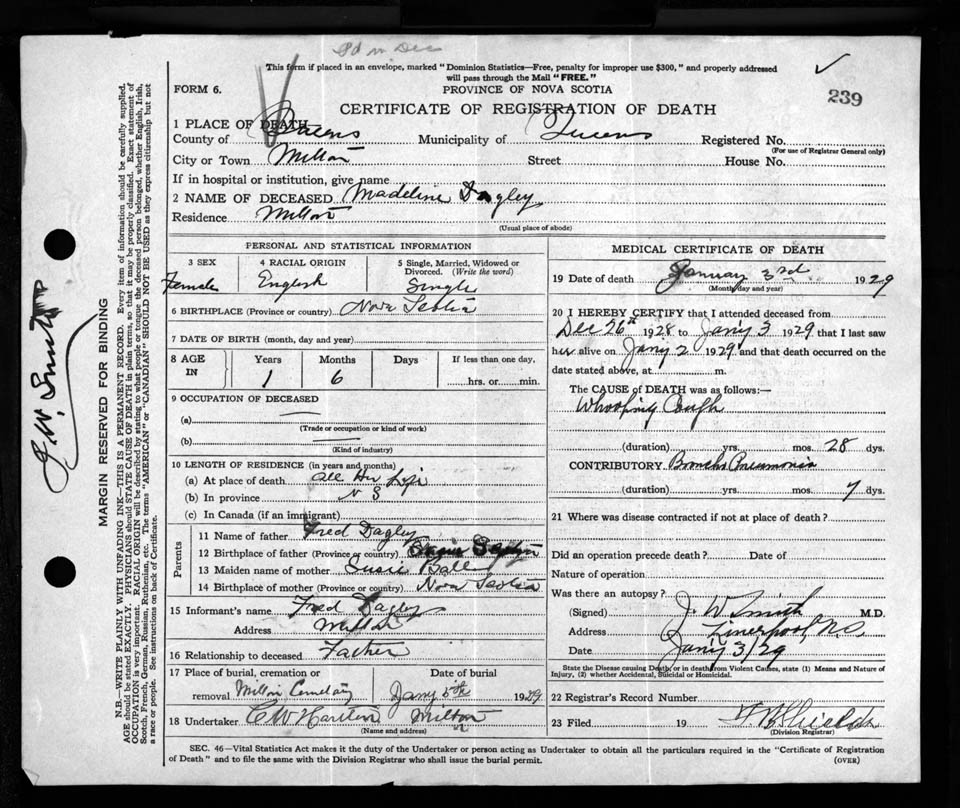 This form if placed in an envelope, marked "Dominion Statistics—Free, penalty for improper use $300," and properly addressed
will pass through the Mail "FREE."
FORM 6.
PROVINCE OF NOVA SCOTIA
239
CERTIFICATE OF REGISTRATION OF DEATH
1 PLACE OF DEATH
County of Queens Municipality of Queens Registered No.
(For use of Registrar General only)
City or Town Milton Street House No.
If in hospital or institution, give name
2 NAME OF DECEASED Madeline Dagley
Residence Milton
(Usual place of abode)
PERSONAL AND STATISTICAL INFORMATION
3 SEX
Female
4 RACIAL ORIGIN
English
5 Single, Married, Widowed or
Divorced. (Write the word)
Single
6 BIRTHPLACE (Province or country) Nova Scotia
7 DATE OF BIRTH (month, day and year)
8 AGE IN
Years Months Days If less than one day,
1 6 hrs. or min.
9 OCCUPATION OF DECEASED
(a)
(Trade or occupation or kind of work)
(b)
(Kind of industry)
10 LENGTH OF RESIDENCE (in years and months)
(a) At place of death all Her Life
(b) In province N S
(c) In Canada (if an immigrant)
Parents
11 Name of father Fred Dagley
12 Birthplace of father (Province or country)
13 Maiden name of mother Susie
14 Birthplace of mother (Province or country) Nova Scotia
15 Informant's name Fred Dagley
Address Milton
16 Relationship to deceased Father
17 Place of burial, cremation or Date of burial
removal Milton Cemetary Jany 5th 1929
18 Undertaker C W Milton
(Name and address)
MEDICAL CERTIFICATE OF DEATH
19 Date of death January 3rd 1929
(Month, day and year)
20 I HEREBY CERTIFY that I attended deceased from
Dec 26th 1928 to Jany 3 1929 that I last saw
her alive on Jany 2 1929 and that death occurred on the
date stated above, at m.
The CAUSE of DEATH was as follows:
Whooping Cough
(duration) yrs. mos. 28 dys.
CONTRIBUTORY Broncho Pneumonia
(duration) yrs. mos. 7 dys.
21 Where was disease contracted if not at place of death?
Did an operation precede death? Date of
Nature of operation
Was there an autopsy?
(Signed) J. W Smith M.D.
Address Liverpool, N.S.
Date Jany 3/29
State the Disease causing Death or in death from Violent Causes, state (1) Means and Nature of
Injury, (2) whether Accidental, Suicidal or Homicidal.
22 Registrar's Record Number
23 Filed 19
(Division Registrar)
SEC. 46—Vital Statistics Act makes it the duty of the Undertaker or person acting as Undertaker to obtain all the particulars required in the "Certificate of Registration
of Death" and to file the same with the Division Registrar who shall issue the burial permit. (OVER)
J. W. Smith
MARGIN RESERVED FOR BINDING
N.B.—WRITE PLAINLY WITH UNFADING INK—THIS IS A PERMANENT RECORD. Every item of information should be carefully supplied.
AGE should be stated EXACTLY. PHYSICIANS should STATE CAUSE OF DEATH in plain terms, so that it may be properly classified. Exact statement of
OCCUPATION is very important. RACIAL ORIGIN will be described by stating to what people or tongue the deceased person belonged, whether English, Irish,
Scotch, French, German, Russian, Ruthenian, etc. The terms "AMERICAN" or "CANADIAN" SHOULD NOT BE USED as they express citizenship but not
a race or people. See instructions on back of Certificate.